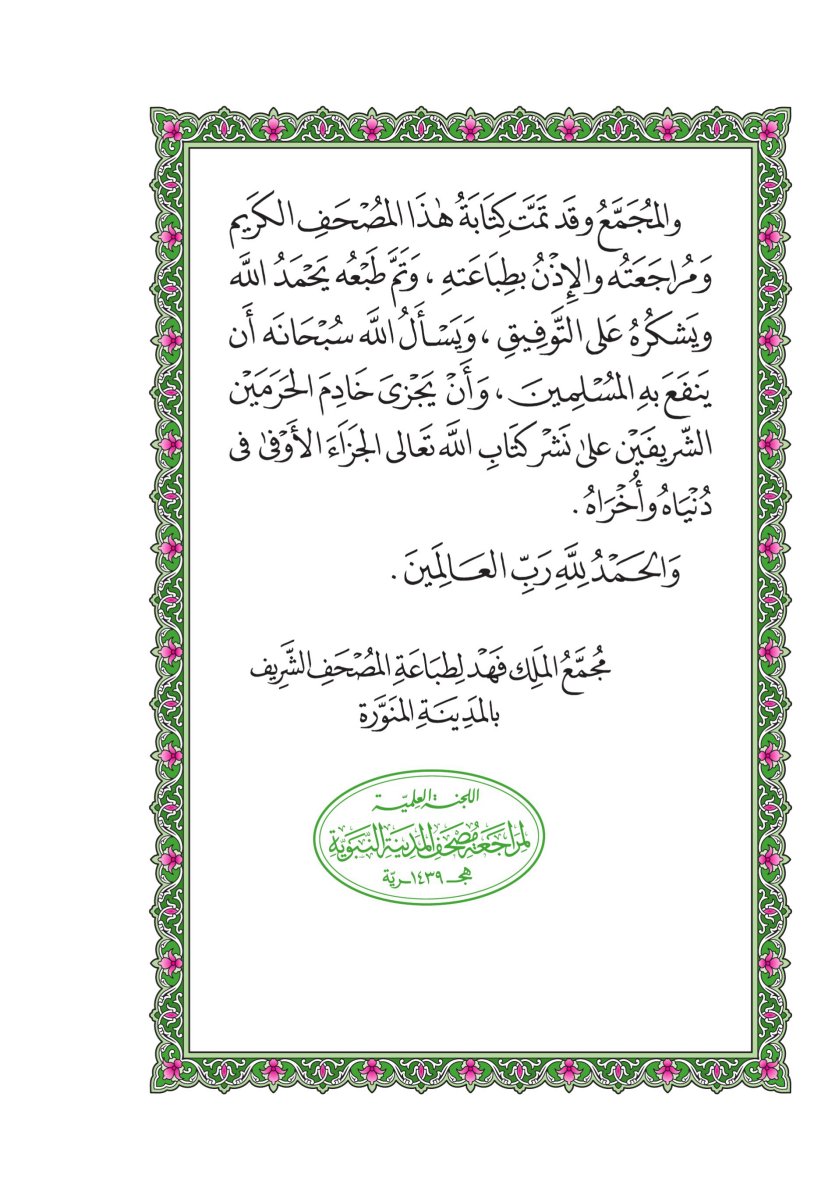 والمُجَمَّعُ وقَد تمَّت كِتَابَةُ هٰذا المُصْحَفِ الكَرِيم
وَمُراجَعَتُه والإِذْنُ بطِبَاعَتهِ ، وَتَمَّ طَبْعُه يَحْمَدُ اللَّه
ويَشكرُهُ عَلى التَّوفِيقِ ، وَيَسْأَلُ اللَّه سُبْحَانَه أَن
يَنفَعَ بهِ المُسْلِمِينَ ، وَأَنْ يَجْزىَ خَادِمَ الحَرَمَيْن
الشَّرِيفَيْن علىٰ نَشْر كتَابِ اللَّه تعَالى الجَزَاءَ الأَوْفىٰ فى
دُنْيَاهُ وأُخْرَاهُ .
وَالحَمْدُ لِلَّهِ رَبِّ العَالَمِينَ .
مُجمَّعُ الملِك فَهْد لِطبَاعَةِ المُصْحَفِ الشَّرِيف
بالمَدِينَةِ المنَوَّرَة
اللجنة العِلميّة
لمرَاجَعَة مُصْحَف المَدِينَةِ النَّبَوِيَّةِ
هجـ ١٤٣٩ ـريّة